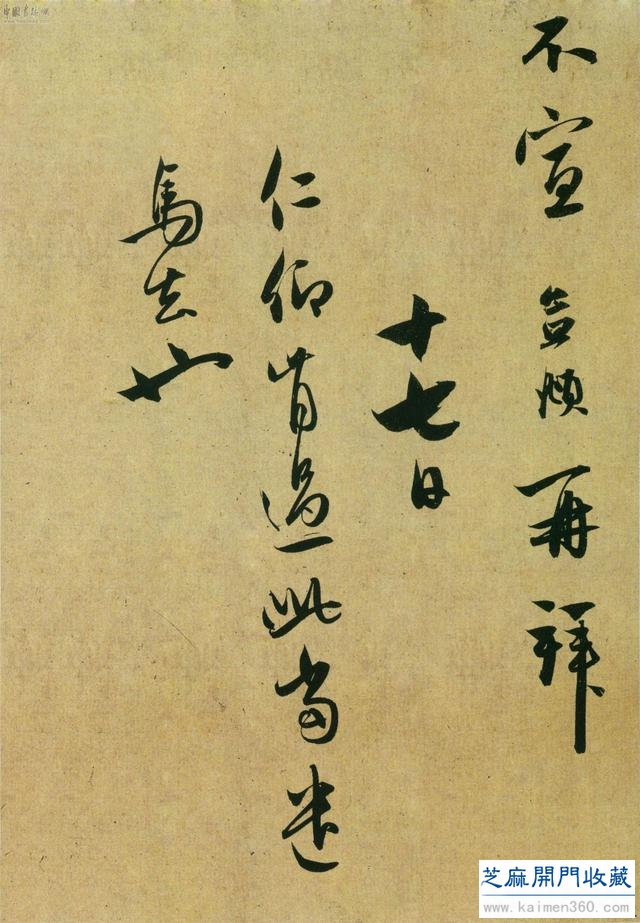 中國書法網
不宣 再拜
十七日
仁仰肯過此當遣
馬去也
芝麻開門收藏
www.kaimen360.com